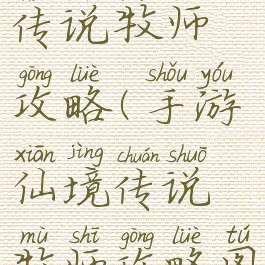 传说牧师
gōng lüè shǒu yóu
攻略(手游
xiān jìng chuán shuō
仙境传说
mù shī gōng lüè tú
牧师攻略图